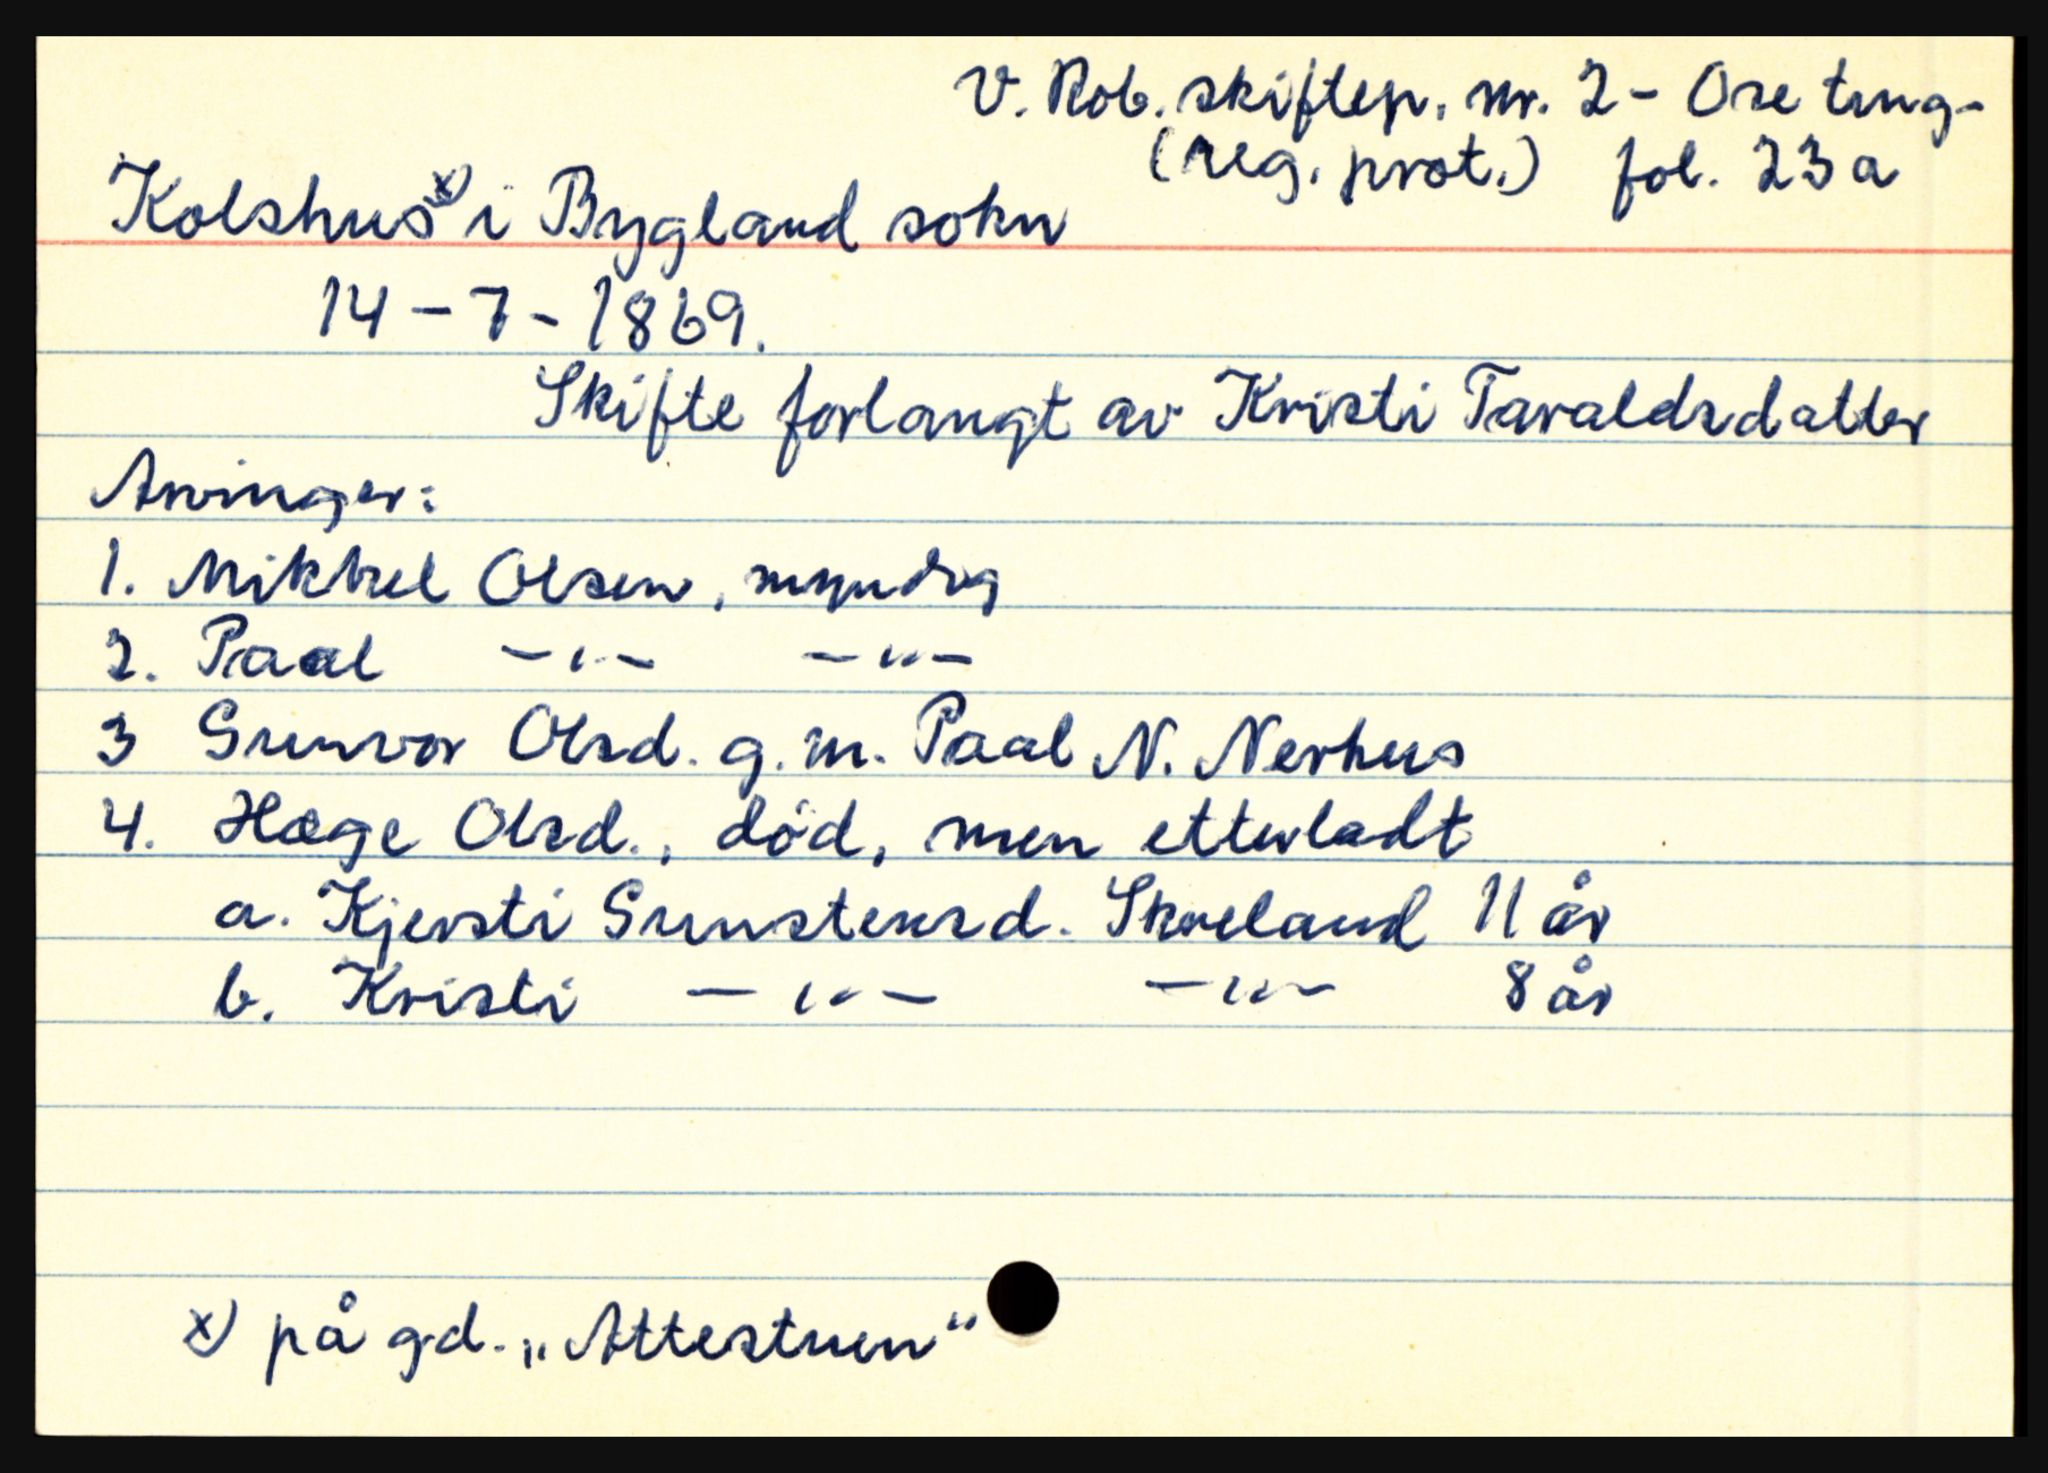 V. Rob. skiftep. nr. 2 - Ose ting-
(reg. prot.) fol. 23a
Kolshus x) i Bygland sokn
14 - 7 - 1869.
Skifte forlangt av Kristi Taraldsdatter
Arvinger:
1. Mikkel Olsen, myndig
2. Paal -"- -"-
3 Gunvor Olsd. g.m. Paal N. Nerhus
4. Hæge Olsd., død, men etterladt
a. Kjersti Gunstensd. Skreland 11 år
b. Kristi -"- -"- 8 år
x) på gd. „Attestuen“